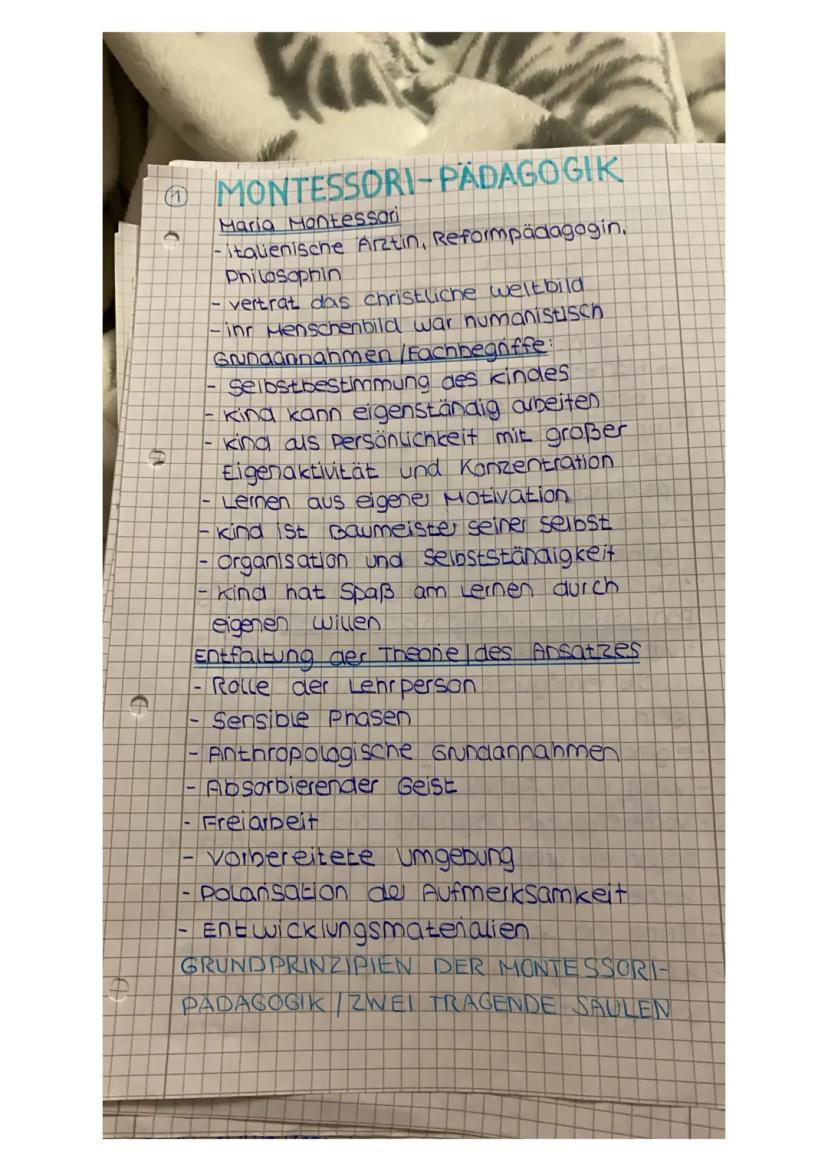 ① MONTESSORI-PÄDAGOGIK
Maria Montessori
- italienische Ärztin, Reformpädagogin,
Philosophin
- vertrat das christliche Weltbild
- ihr Menschenbild war humanistisch
Grundannahmen/Fachbegriffe:
- Selbstbestimmung des Kindes
- Kind kann eigenständig arbeiten
- Kind als Persönlichkeit mit großer
Eigenaktivität und Konzentration
- Lernen aus eigener Motivation
- Kind ist Baumeister seiner selbst
- Organisation und Selbstständigkeit
- Kind hat Spaß am Lernen durch
eigenen Willen
Entfaltung der Theorie/des Absatzes
- Rolle der Lehrperson
- Sensible Phasen
- Anthropologische Grundannahmen
- Absorbierender Geist
- Freiarbeit
- Vorbereitete Umgebung
- Polarisation der Aufmerksamkeit
- Entwicklungsmaterialien
GRUNDPRINZIPIEN DER MONTESSORI-
PÄDAGOGIK/ZWEI TRAGENDE SÄULEN